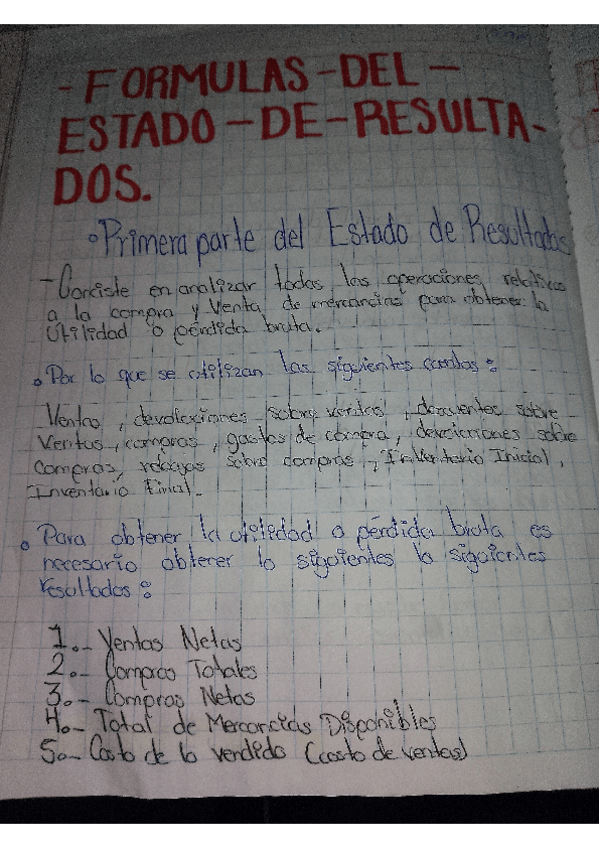 -FORMULAS-DEL-
ESTADO-DE-RESULTA-
DOS.
•Primera parte del Estado de Resultados
-Consiste en analizar todas las operaciones relativas
a la compra y venta de mercancías para obtener la
Utilidad o pérdida bruta.
•Por lo que se utilizan las siguientes cuentas:
Ventas, devoluciones sobre ventas, descuentos sobre
Ventas, compras, gastos de compra, devoluciones sobre
Compras, rebajas sobre compras, Inventario Inicial,
Inventario Final.
•Para obtener la utilidad o pérdida bruta es
necesario obtener lo siguientes lo siguientes
resultados:
1.- Ventas Netas
2.- Compras Totales
3.- Compras Netas
4.- Total de Mercancías Disponibles
5.- Costo de lo vendido (costo de ventas)